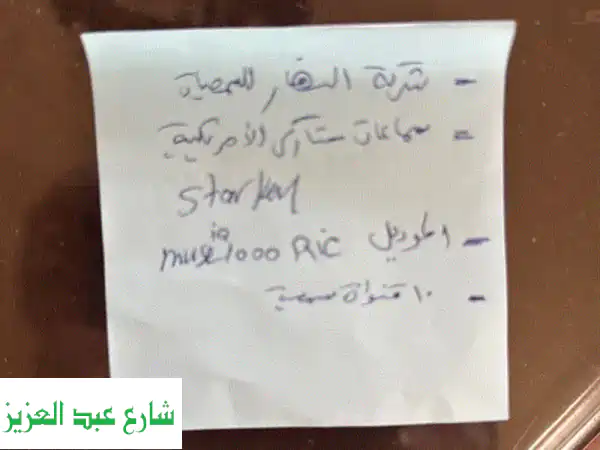 - شركة السفار للسمعيات
- سماعات ستاركي الأمريكية
Starkey
- الموديل muse iQ 1000 RIC
- ١٠ قنوات سمعية
شارع عبد العزيز